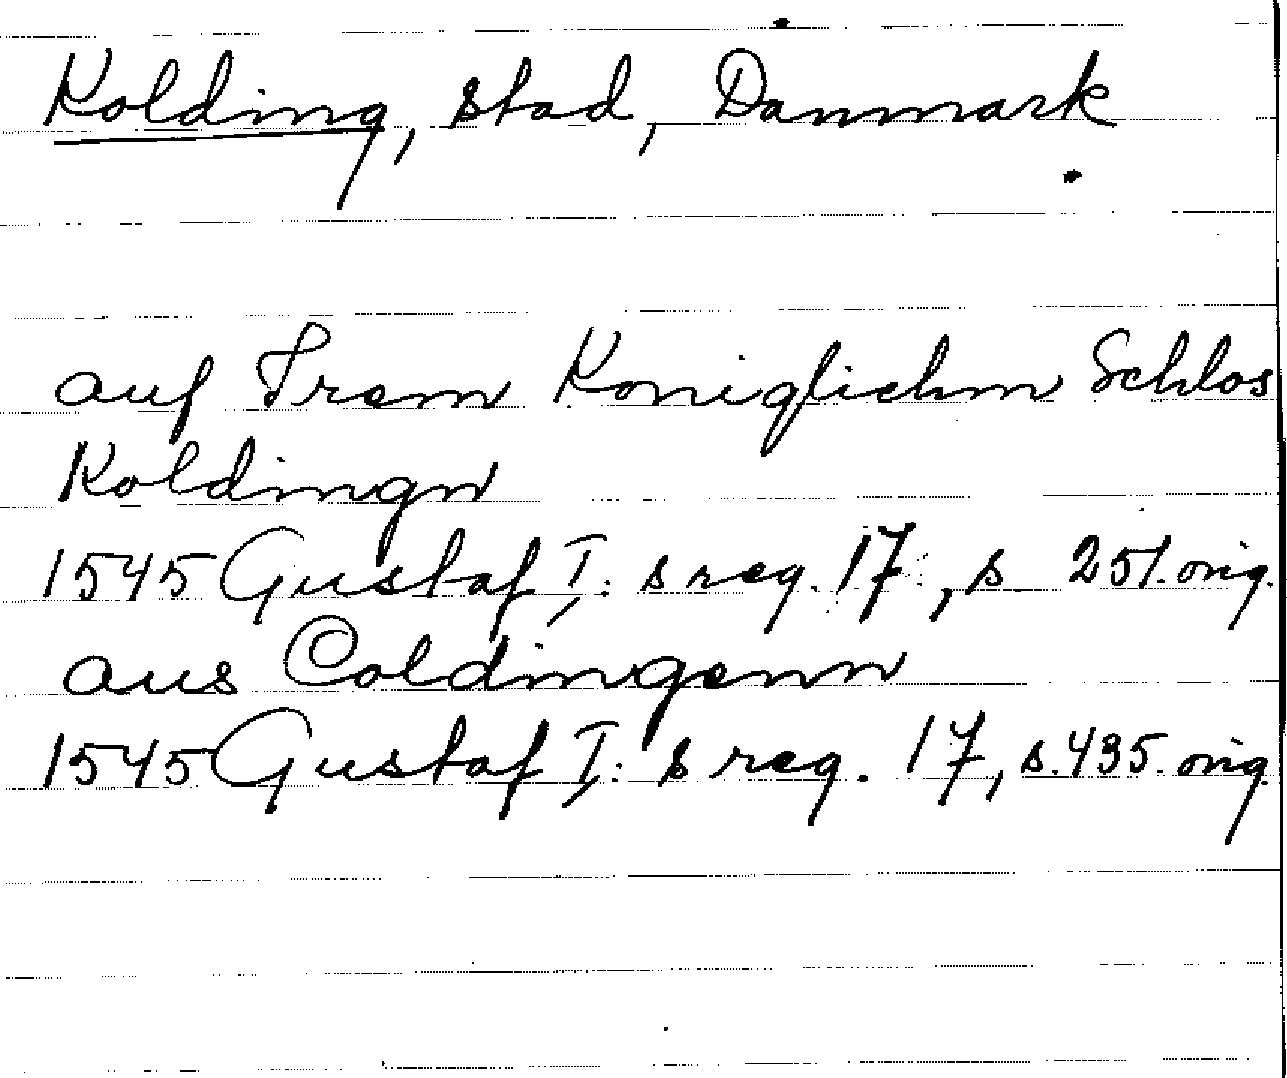 Kolding, stad, Danmark
auf Irem Koniglichm Schlos
Koldingn
1545 Gustaf I:s reg. 17, s 251. orig.
aus Coldingenn
1545 Gustaf I:s reg. 17, s. 435. orig